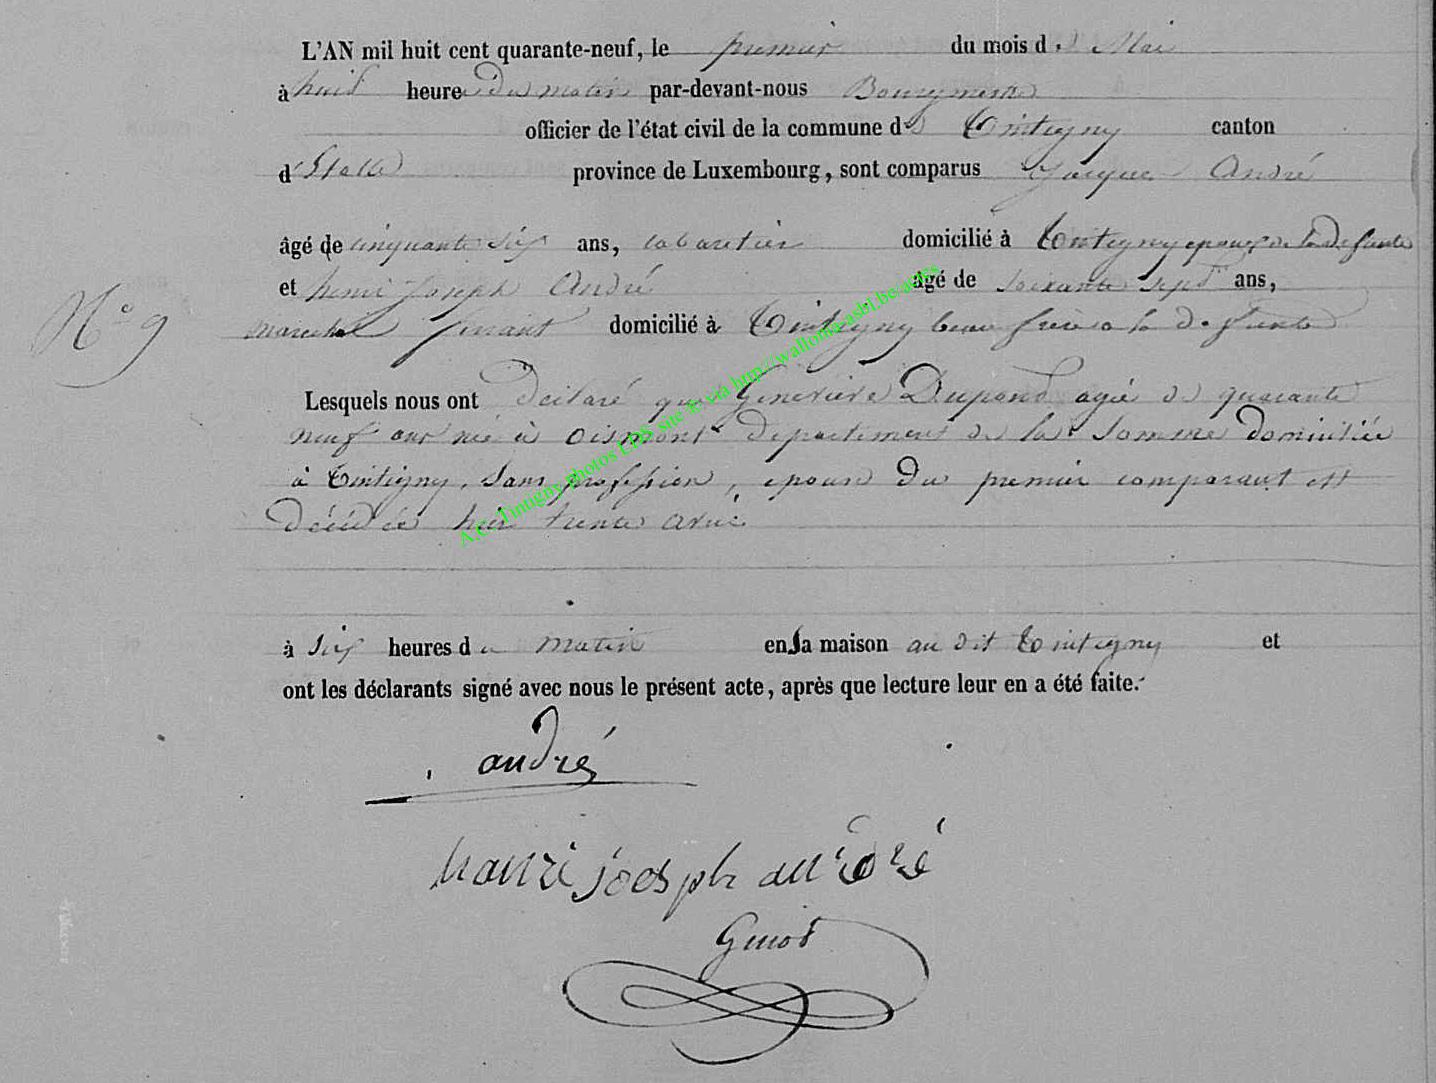 L'AN mil huit cent quarante-neuf, le premier du mois de Mai
à huit heures du matin par-devant-nous Bourgmestre
officier de l'état civil de la commune de Tintigny canton
d'Etalle province de Luxembourg, sont comparus Jacques André
âgé de cinquante six ans, cabaretier domicilié à Tintigny epoux de la defunte
et henri Joseph André âgé de soixante sept ans,
N° 9
marechal ferrant domicilié à Tintigny beau frere a la defunte
Lesquels nous ont declaré que Genevieve Dupond agée de quarante
neuf ans née à oisemont departement de la Somme domiciliée
à Tintigny, sans profession, epouse du premier comparant est
décédée hier trente avril
à six heures du matin en sa maison au dit Tintigny et
ont les déclarants signé avec nous le présent acte, après que lecture leur en a été faite.
andré
hanri joesph andré
A.C. Tintigny photos LDS site & via http://wallonia-asbl.be/actes